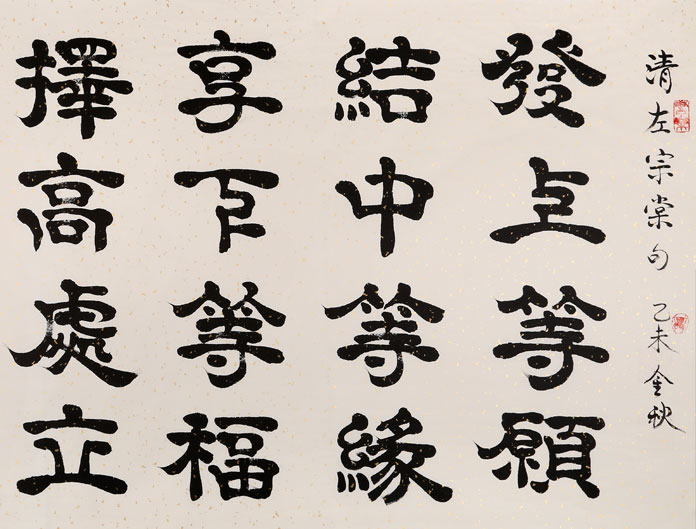 清左宗棠句 乙未金秋
發上等願
結中等緣
享下等福
擇高處立